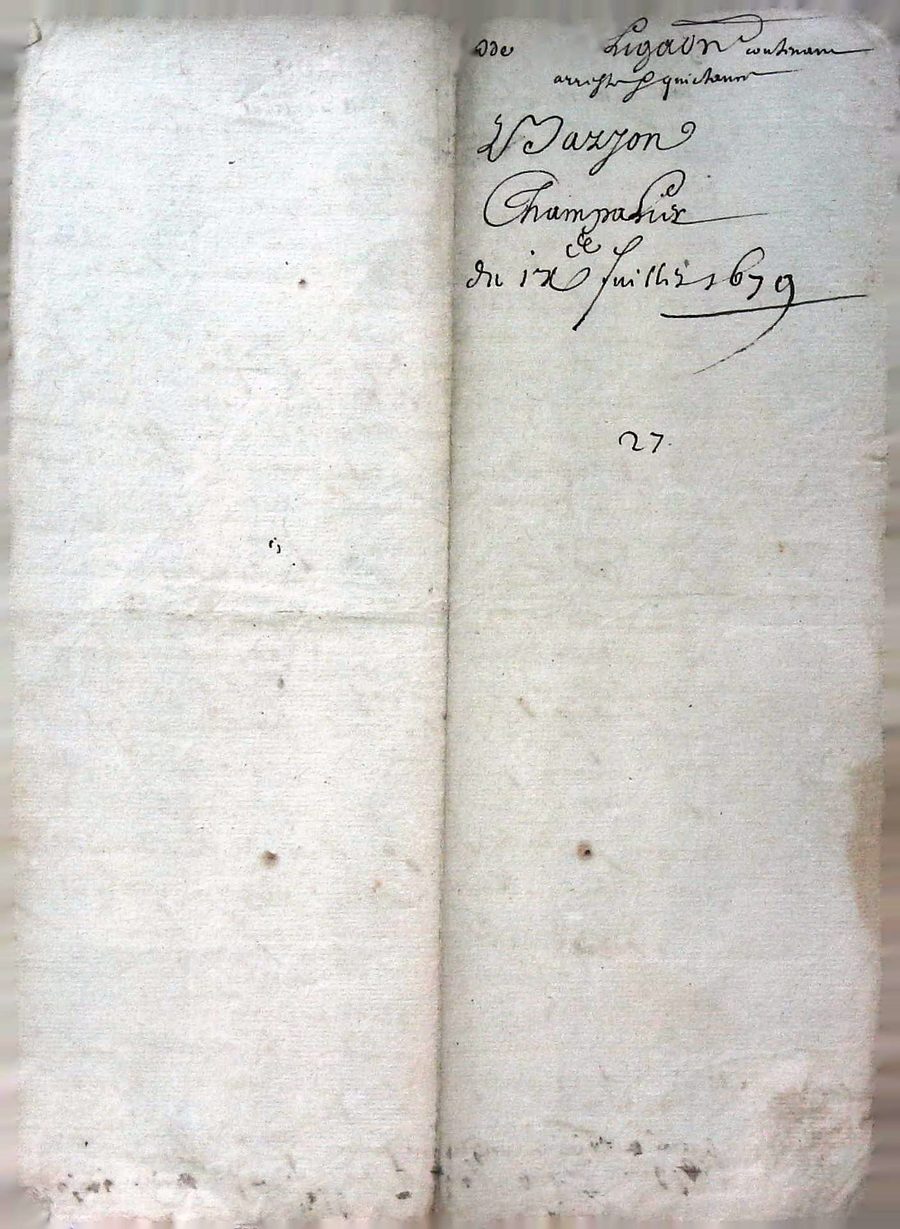 Ligaon contenant
arreste & quictance
Mazyon
Champalier
du ixe Juillet 1679
27